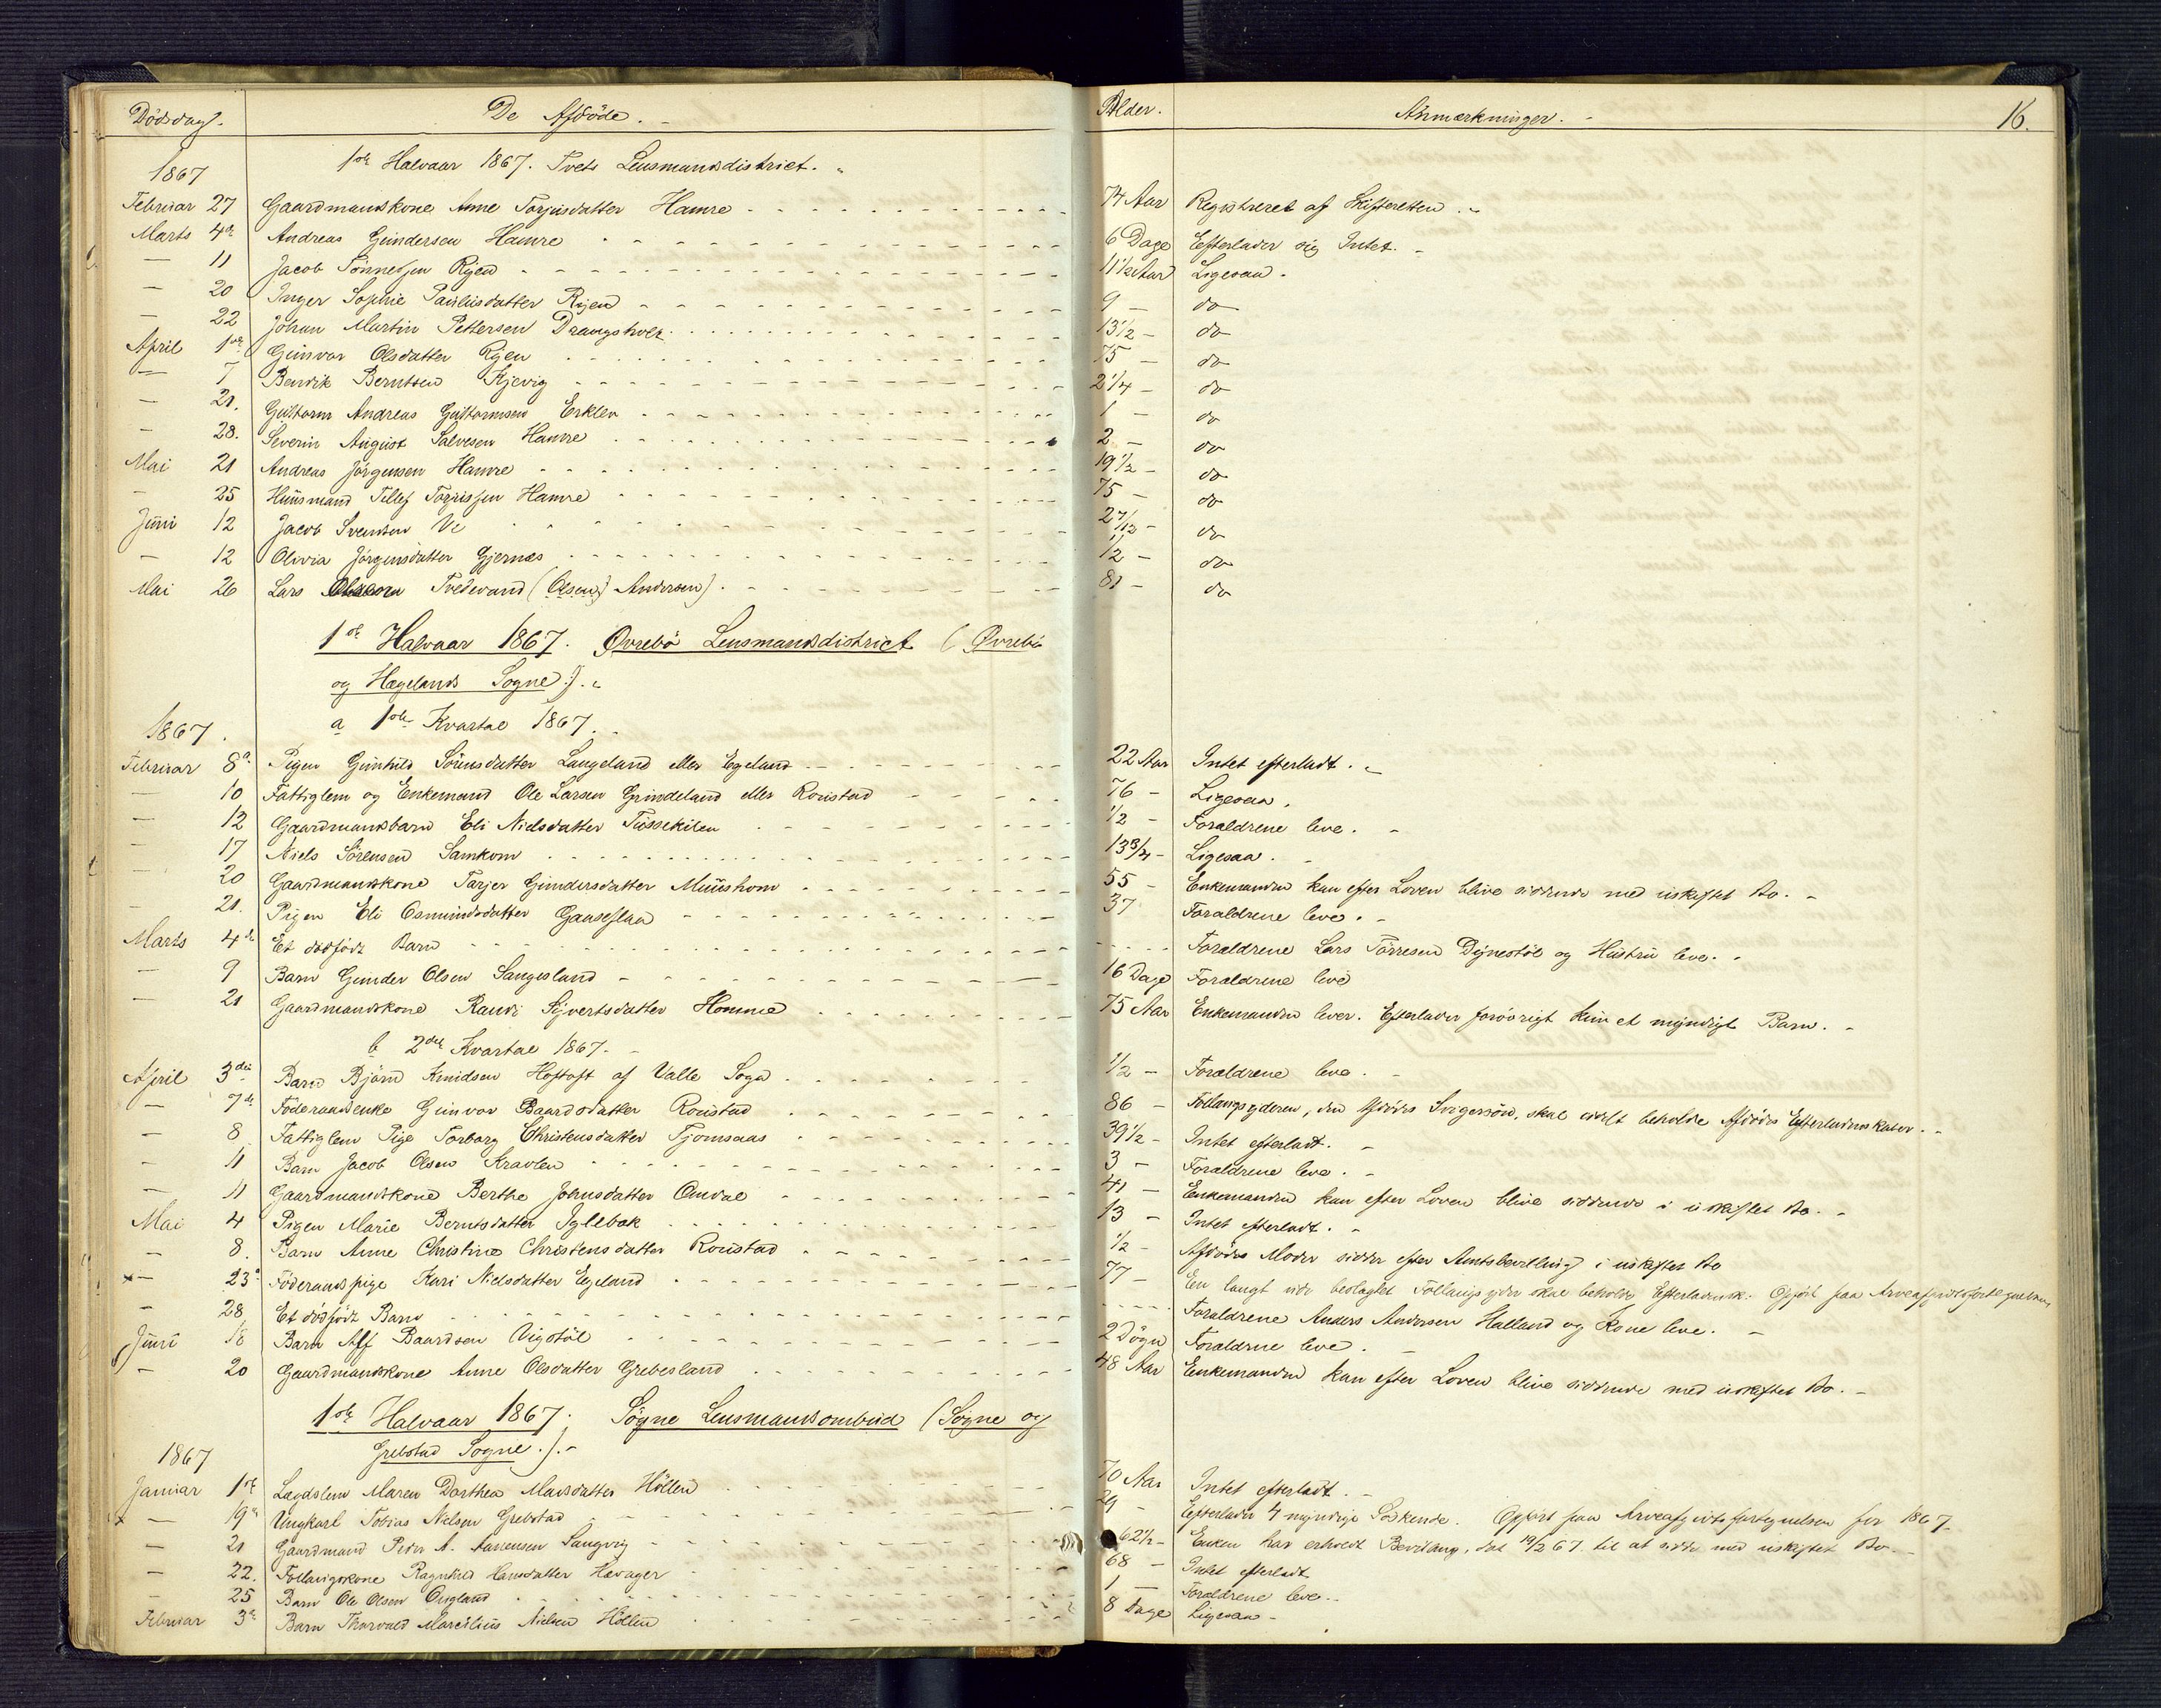 Dödsdag. De Afdöde. Alder. Anmærkninger. 16.
1867 1ste Halvaar 1867. Tvets Lensmandsdistrict.
Februar 27 Gaardmandskone Anne Torjusdatter Hamre 74 Aar Registreret af Skifteretten.
Marts 4de Andreas Gundersen Hamre 6 Dage Efterlader sig Intet.
— 11 Jacob Tönnessen Ryen 11 1/2 Aar Ligesaa.
— 20 Inger Sophie Paulusdatter Ryen 9 — do
— 22 Johan Martin Pettersen Drangsholt 13 1/2 — do
April 1ste Gunvor Olsdatter Ryen 75 — do
— 7 Bendik Berntsen Kjevig 2 1/4 — do
— 21. Guttorm Andreas Guttormsen Erklev 1 — do
— 28. Severin August Salvesen Hamre 2 — do
Mai 21 Andreas Jörgensen Hamre 19 1/2 — do
— 25 Huusmand Tellef Torrissen Hamre 75 — do
Juni 12 Jacob Svendsen Ve 2 7/12 — do
— 12 Olivia Jörgensdatter Gjernæs 1/2 — do
Mai 26 Lars Tvedvand (Olsen) Andersen). 81 — do
1ste Halvaar 1867. Øvrebö Lensmandsdistrict (Øvrebö
og Hægelands Sogne).
1867. a 1ste Kvartal 1867.
Februar 8de Pigen Gunhild Sörensdatter Langeland eller Egeland 22 Aar Intet efterladt.
— 10 Fattiglem og Enkemand Ole Larsen Grindeland eller Roustad 76 — Ligesaa.
— 12 Gaardmandsbarn Eli Nielsdatter Tussekilen 1/2 — Forældrene leve.
— 17 Niels Sörensen Samkom 13 3/4 — Ligesaa.
— 20 Gaardmandskone Tarjer Gundersdatter Muushom 55 — Enkemanden kan efter Loven blive siddende med uskiftet Bo.
— 21. Pigen Eli Osmundsdatter Gaaseflaa 37 Forældrene leve.
Marts 4de Et dödfödt Barn Forældrene Lars Törresen Dynestöl og Hustru leve.
— 9 Barn Gunder Olsen Sangesland 16 Dage Forældrene leve
— 21 Gaardmandskone Randi Syvertsdatter Homme 75 Aar Enkemanden lever. Efterlader forövrigt kun et myndigt Barn.
b 2det Kvartal 1867.
April 3die Barn Björn Knudsen Hoftoft af Valle Sogn 1/2 — Forældrene leve.
— 7de Föderaadsenke Gunvor Baardsdatter Roustad 86 — Follaugsyderen, den Afdödes Svigersön, skal beholde Afdödes Efterladenskaber.
— 8 Fattiglem Pige Torborg Christensdatter Tjomsaas 39 1/2 — Intet efterladt.
— 11 Barn Jacob Olsen Kravlen 3 — Forældrene leve.
— 11 Gaardmandskone Berthe Johnsdatter Omdal 41 — Enkemanden kan efter Loven blive siddende i uskiftet Bo.
Mai 4 Pigen Marie Berntsdatter Iglebæk 13 — Intet efterladt.
— 8. Barn Anne Christine Christensdatter Roustad 1/2 — Afdödes Moder sidder efter Amtsbevilling i uskiftet Bo
x — 23de Föderaadspige Kari Nielsdatter Egeland 77 — En langt ude beslægtet Follaugsyder skal beholde Efterladensk. Opfört paa Arveafgiftsfortegnelsen
— 28 Et dödfödt Barn Forældrene Anders Andersen Halland og Kone leve.
Juni 18 Barn Alf Baardsen Vigstöl 2 Dögn Forældrene leve.
— 20 Gaardmandskone Anne Olsdatter Grebesland 48 Aar Enkemanden kan efter Loven blive siddende med uskiftet Bo.
1ste Halvaar 1867; Sögne Lensmandsombud (Sogne og
1867 Grebstad Sogne).
Januar 1ste Lægdslem Maren Dorthea Madsdatter Höllen 70 Aar Intet efterladt.
x — 19de Ungkarl Tobias Nielsen Grebstad 29 — Efterlader 4 myndige Södskende. Opfört paa Arveafgiftsfortegnelsen for 1867.
— 21 Gaardmand Peder A. Aanensen Langvig 62 1/2 — Enken har erholdt Bevilling, dat 19/2 67 til at sidde med uskiftet Bo.
— 22. Follaugskone Ragnhild Hansdatter Hævager 68 — Intet efterladt
— 25 Barn Ole Olsen Ougland 1 — Forældrene leve.
Februar 3de Barn Thorvald Marcilius Nielsen Höllen 8 Dage Ligesaa